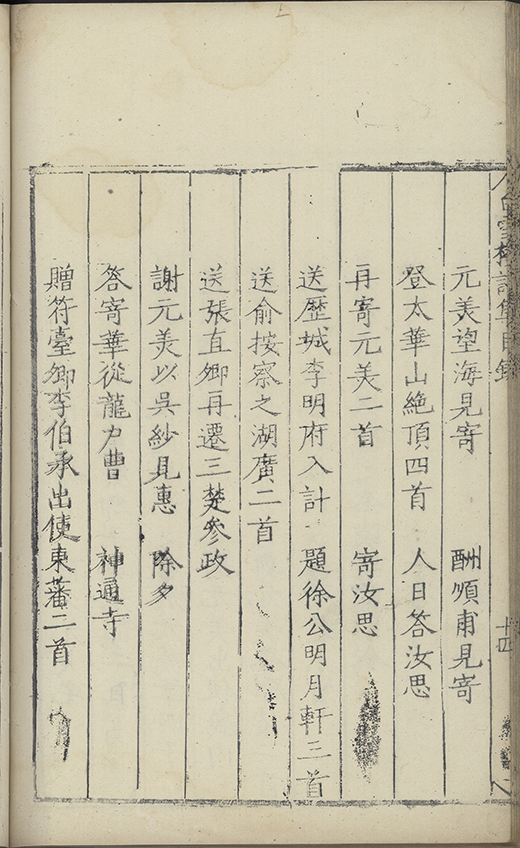 白雪樓詩集目錄
十四
元美望海見寄 酬順甫見寄
登太華山絶頂四首 人日答汝思
再寄元美二首 寄汝思
送歷城李明府入計 題徐公明月軒三首
送俞按察之湖廣二首
送張直卿再遷三楚參政
謝元美以吳紗見惠 除夕
答寄華從龍户曹 神通寺
贈符臺卿李伯承出使東藩二首